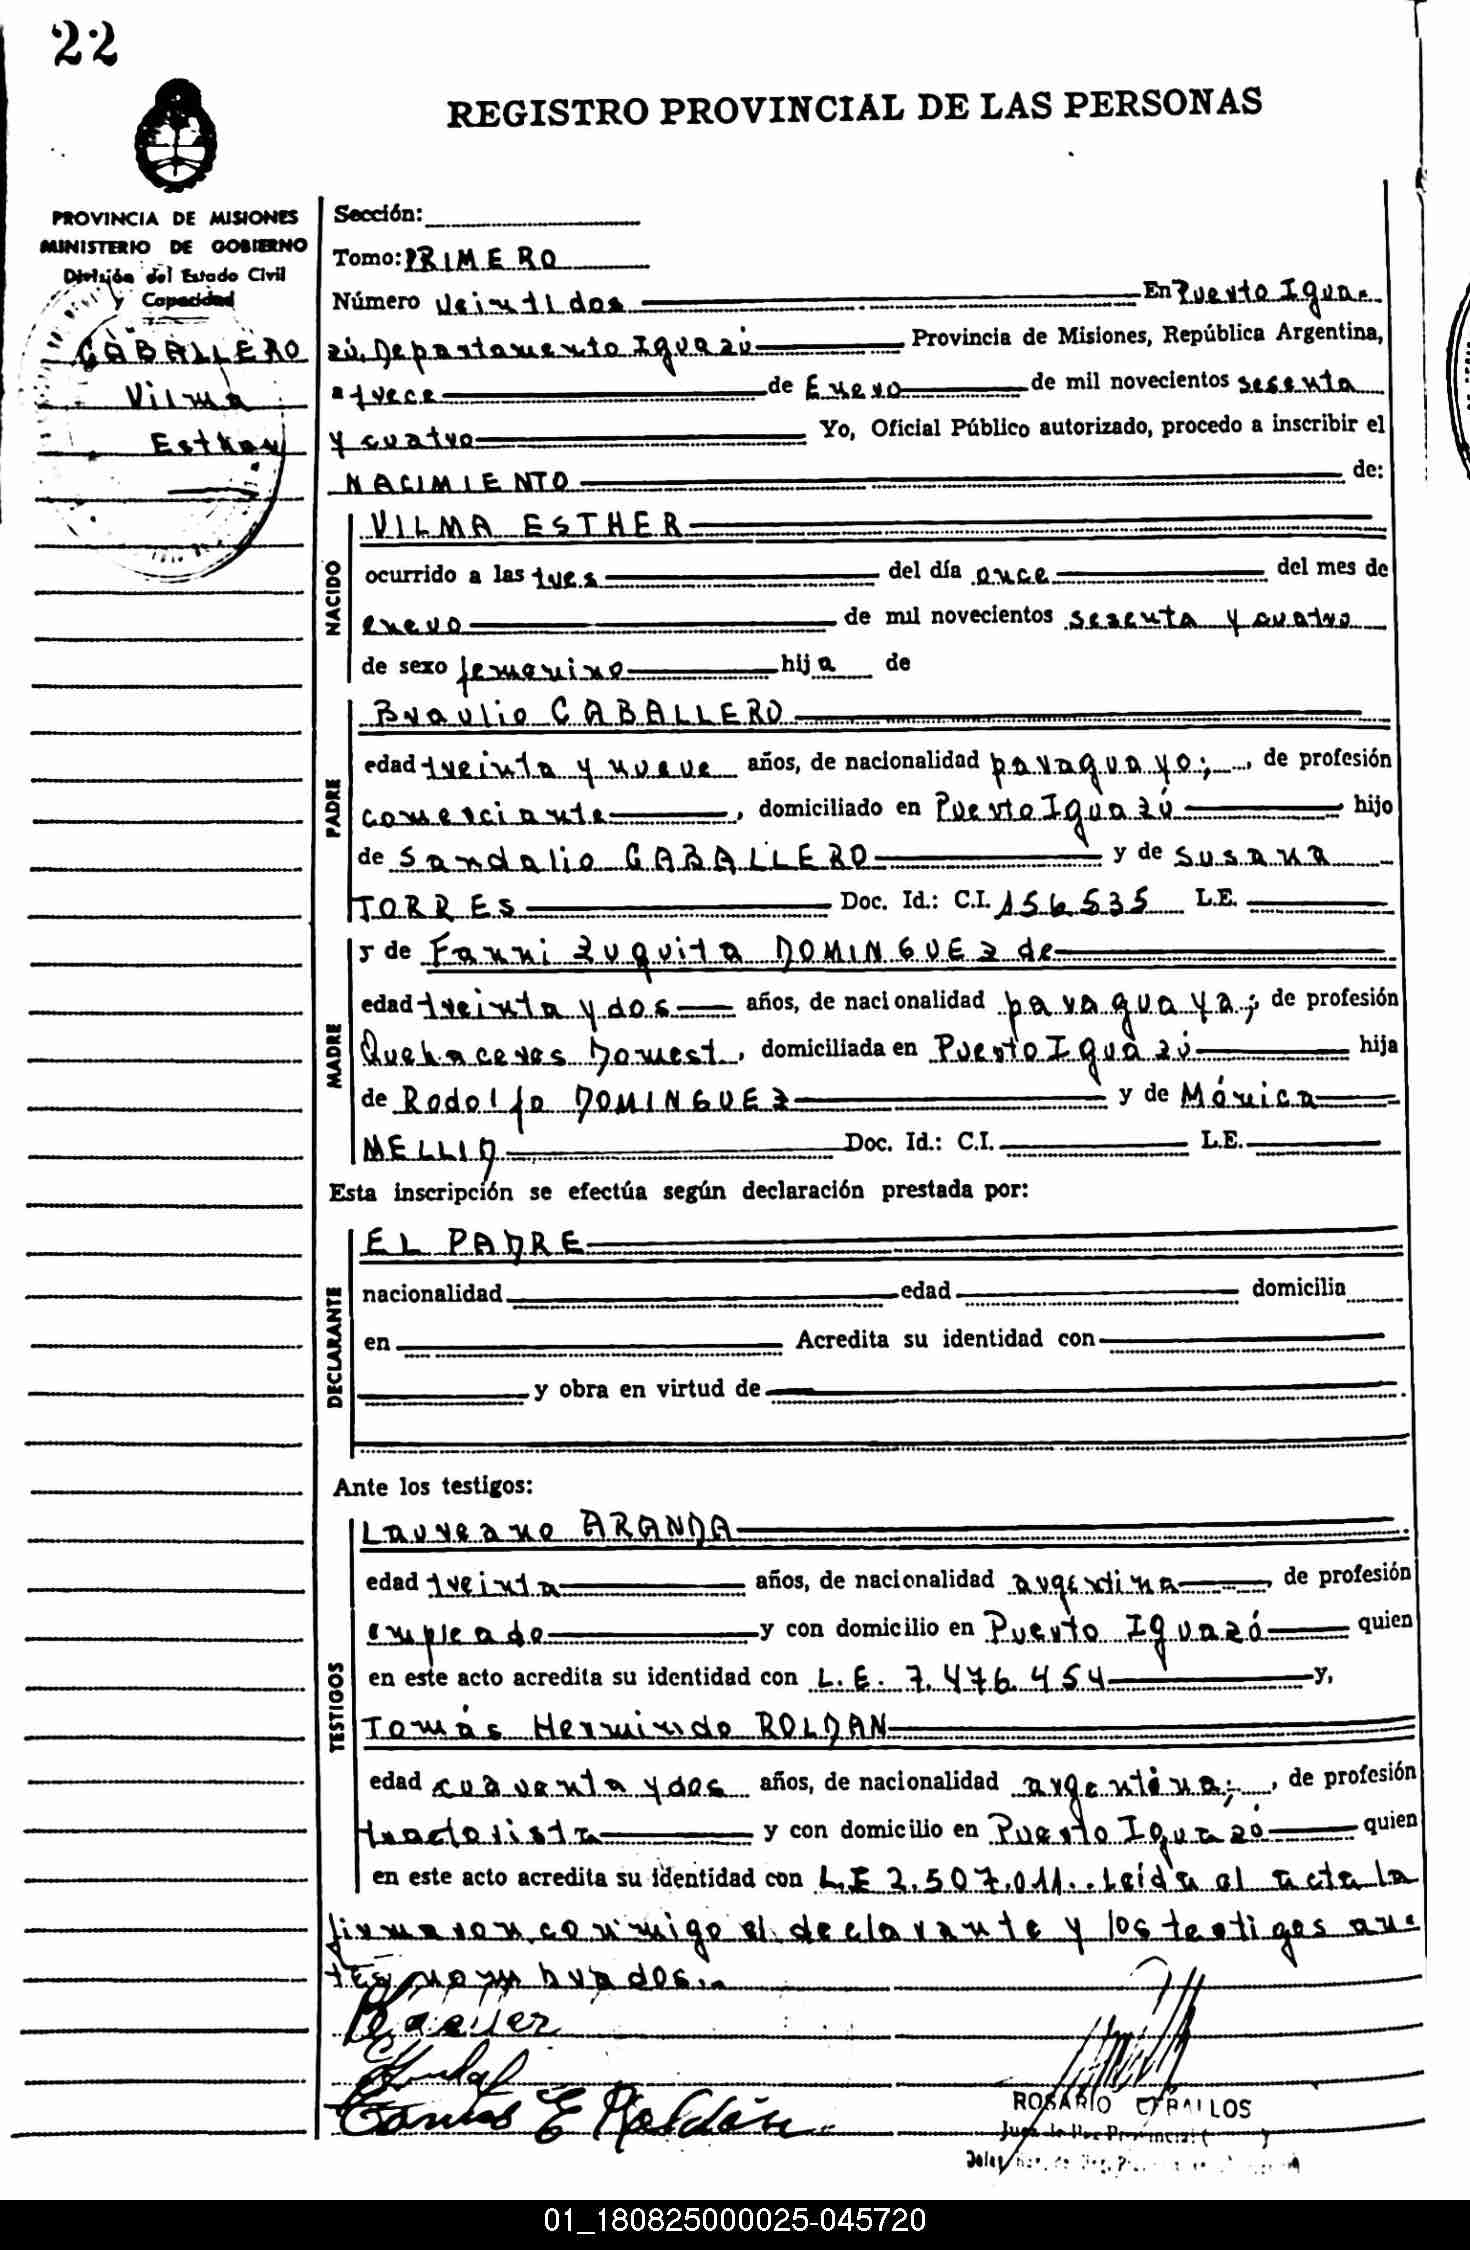 22
REGISTRO PROVINCIAL DE LAS PERSONAS
PROVINCIA DE MISIONES
MINISTERIO DE GOBIERNO
División del Estado Civil
y Capacidad
CABALLERO
Vilma
Esther
Sección:
Tomo: PRIMERO
Número veintidos En Puerto Igua-
zú, Departamento Iguazú Provincia de Misiones, República Argentina,
a trece de Enero de mil novecientos sesenta
y cuatro Yo, Oficial Público autorizado, procedo a inscribir el
NACIMIENTO de:
NACIDO
VILMA ESTHER
ocurrido a las tres del día once del mes de
enero de mil novecientos sesenta y cuatro
de sexo femenino hija de
PADRE
Braulio CABALLERO
edad treinta y nueve años, de nacionalidad paraguayo; , de profesión
comerciante , domiciliado en Puerto Iguazú hijo
de Sandalio CABALLERO y de Susana
TORRES Doc. Id.: C.I. 156535 L.E.
MADRE
y de Fanni Zuquita DOMINGUEZ de
edad treinta y dos años, de nacionalidad paraguaya; de profesión
Quehaceres Domest. , domiciliada en Puerto Iguazú hija
de Rodolfo DOMINGUEZ y de Mónica
MELLID Doc. Id.: C.I. L.E.
Esta inscripción se efectúa según declaración prestada por:
DECLARANTE
EL PADRE
nacionalidad edad domicilia
en Acredita su identidad con
y obra en virtud de
Ante los testigos:
TESTIGOS
Laureano ARANDA
edad treinta años, de nacionalidad argentina , de profesión
empleado y con domicilio en Puerto Iguazú quien
en este acto acredita su identidad con L.E. 7.476.454 y,
Tomás Hermindo ROLDAN
edad cuarenta y dos años, de nacionalidad argentina; , de profesión
tractorista y con domicilio en Puerto Iguazú quien
en este acto acredita su identidad con L.E 2.507.011.. Leída el acta la
firmaron conmigo el declarante y los testigos an-
tes nombrados.-
Roldán
ROSARIO CEBALLOS
01_180825000025-045720